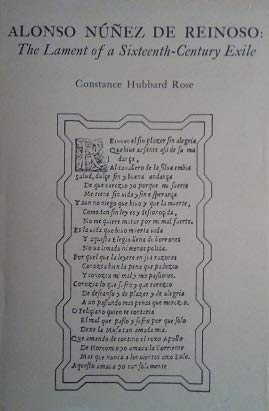 ALONSO NÚÑEZ DE REINOSO:
The Lament of a Sixteenth-Century Exile
Constance Hubbard Rose
sin plazer sin alegria
Que biue
Al cauallero de la silua embia
salud, dulçe fin y buena
De que carezio yo porque mi suerte
Me tiene sin vida y sin esperança
Y aun no niego que biuo y que la muerte,
Como tan sin ley es y
No me quiere matar por mi mal fuerte.
Es la vida que biuo muerta vida
Y aquesta Elegia llena di borrones
No va limada ni menos polida.
Por qual que la leyere en sus razones
Conozca bien la pena que padezio
Y conozca mi mal y mis passiones.
Conozca lo que sufro y que carezio
De descanso y de plazer y de alegria
A un passando mas penas que merezio.
O Feliciano quien te contaria
El mal que passo y sufro por que solo
Dexe la Musa tan amada mia.
Que amando de contino el roxo Apollo
De no yo amaua la Corriente
Mas que nunca a los vientos amo Eolo.
Aquesto amaua yo tan solamente